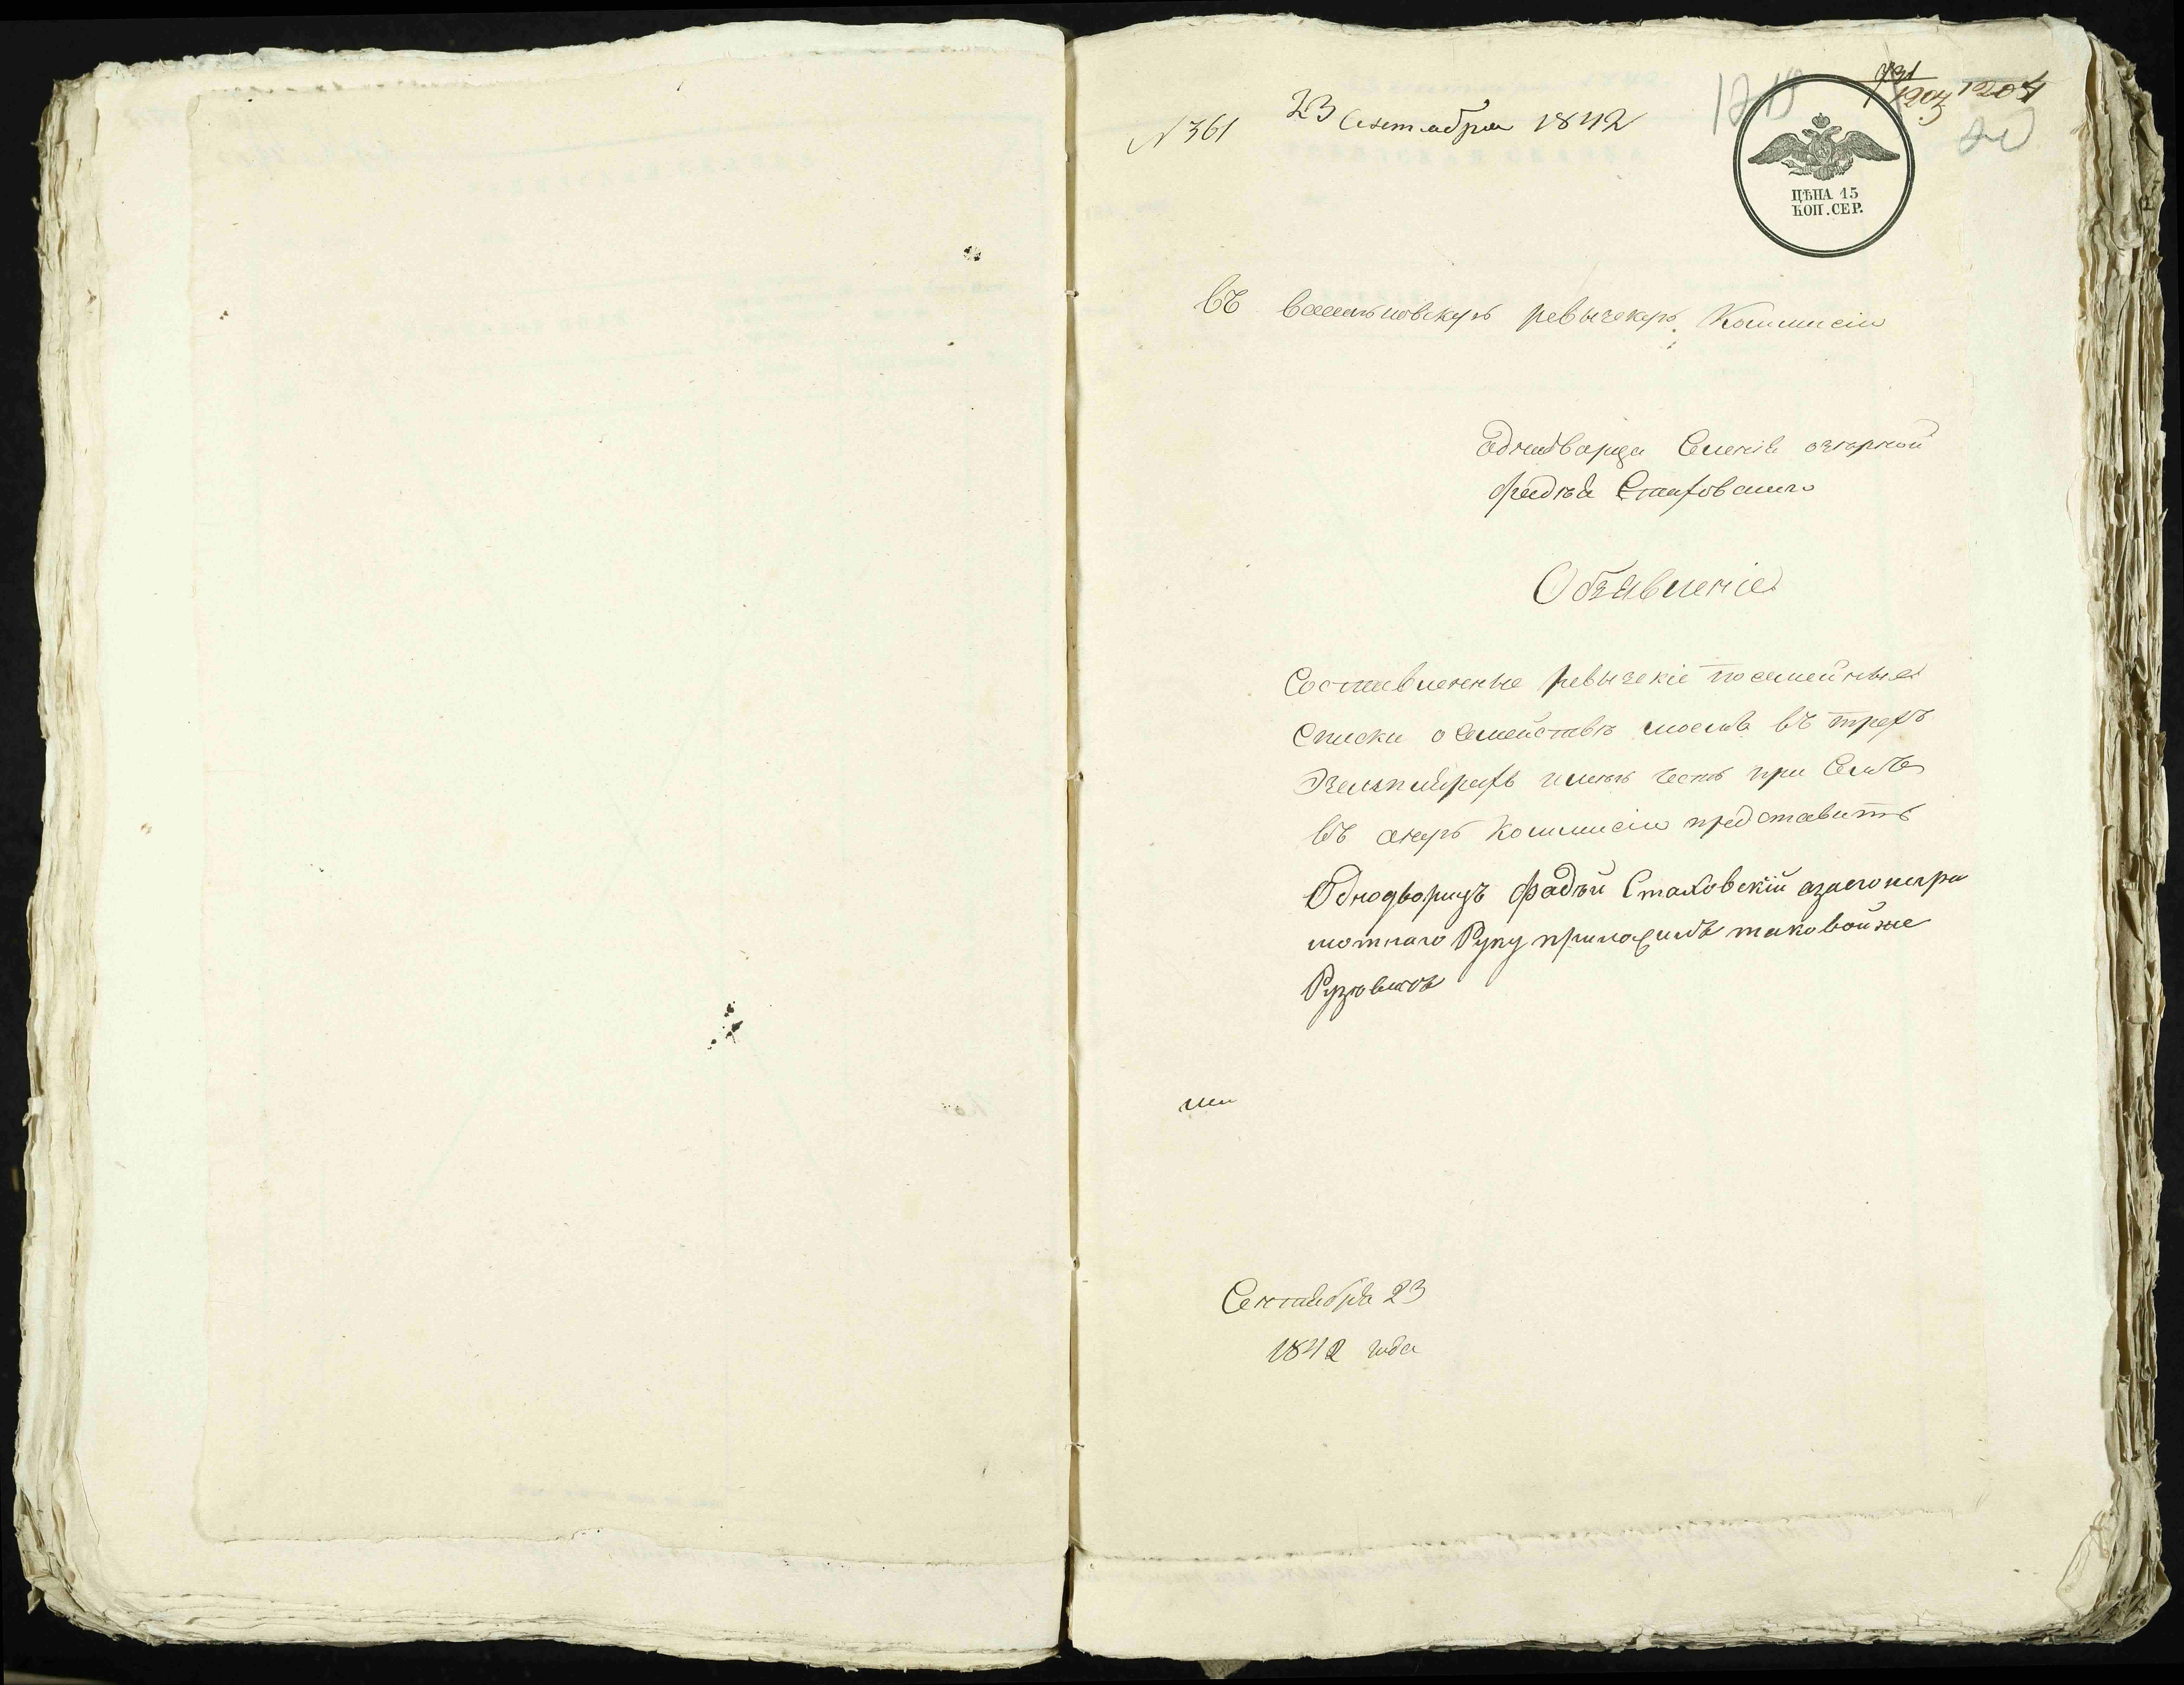 N 361
23 Сентабра 1842
931
1203 1204
ЦѢНА 15
КОП. СЕР.
въ ревызскую Коммисію
однодворца Селенія
Фадѣя Стаховскаго
Объявленіе
Составленные ревызскіе посемейные
Списки о Семействѣ моемъ въ трехъ
Экземплярахъ имею честь при Семъ
въ оную Коммисію представить
Однодворецъ Фадѣй Стаховскій азаего негра
мотнаго Руку приложилъ таковой же
Сентября 23
1842 года